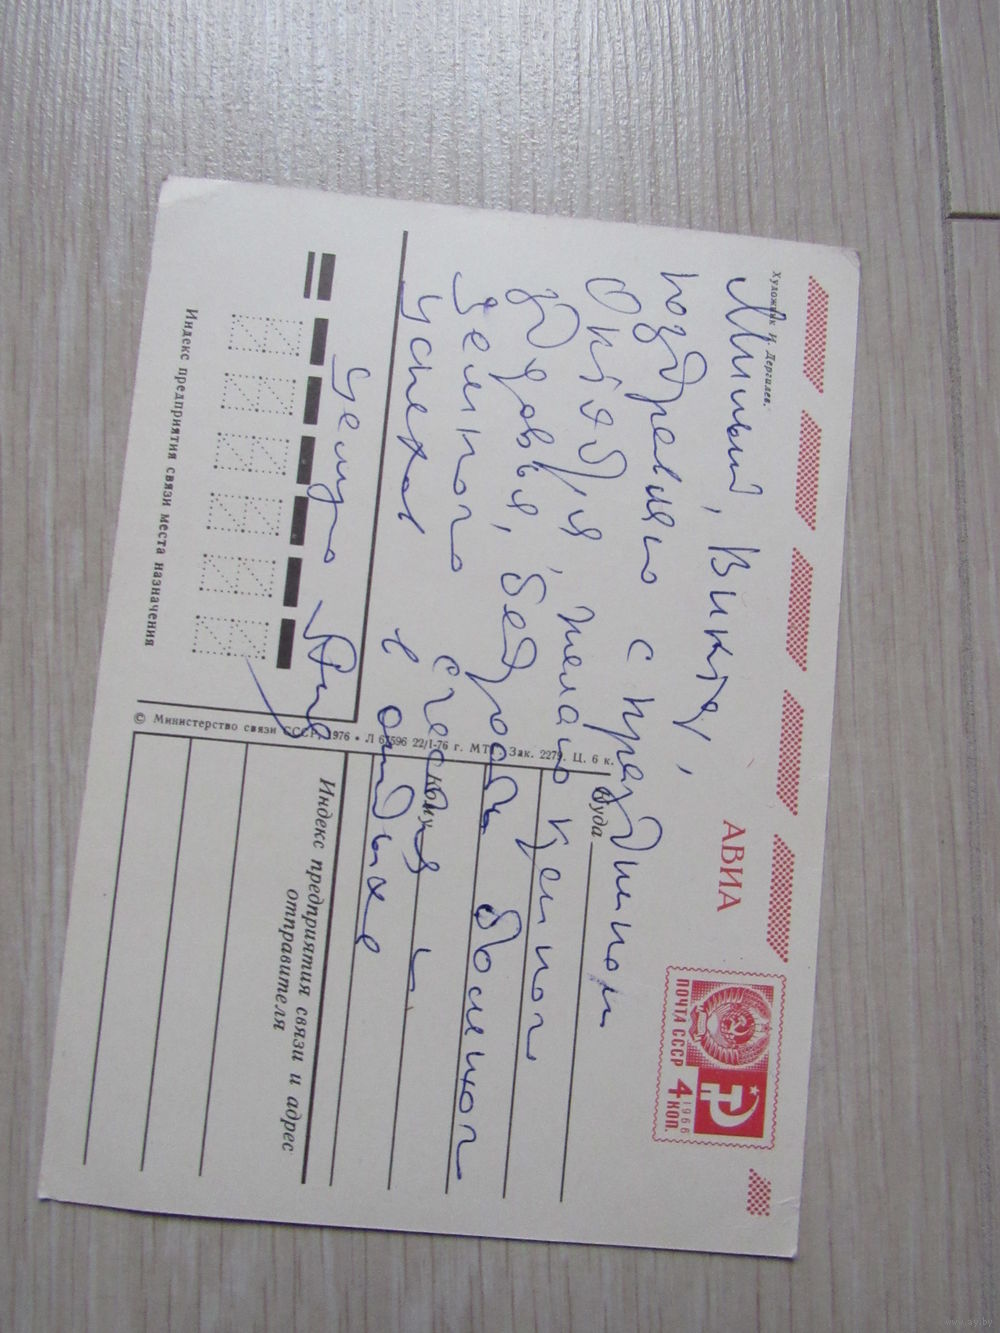 Художник И. Дергилев.
АВИА
ПОЧТА СССР
1966
4 КОП.
Милый, Виктор,
поздравляю с праздником
Октября, желаю
здоровья, бодрости
земного счастья и
успехов в отдыхе
Целую
Куда
Кому
Индекс предприятия связи и адрес
отправителя
© Министерство связи СССР, 1976 • Л 67596 22/I-76 г. МТГ. Зак. 2279. Ц. 6 к.
Индекс предприятия связи места назначения
www.ay.by